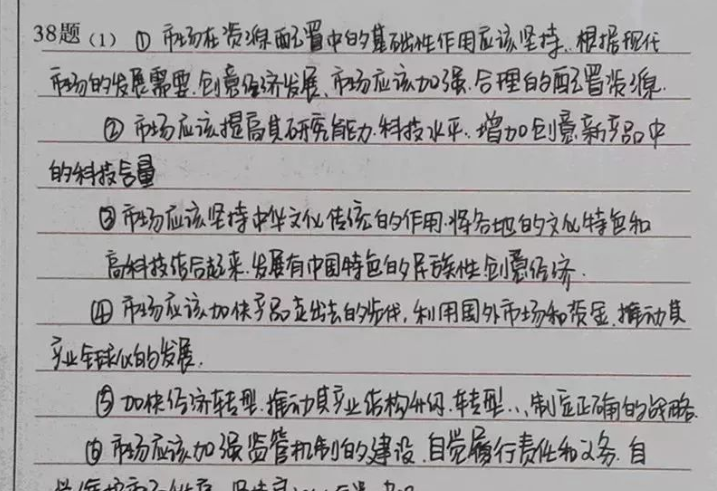 38题(1) ① 市场在资源配置中的基础性作用应该坚持,根据现代
市场的发展需要,创意经济发展,市场应该加强,合理的配置资源.
② 市场应该提高其研究能力,科技水平,增加创意新产品中
的科技含量
③ 市场应该坚持中华文化传统的作用,将各地的文化特色和
高科技结合起来,发展有中国特色的民族性创意经济.
④ 市场应该加快产品走出去的步伐,利用国外市场和资金,推动其
产业全球化的发展.
⑤ 加快经济转型,推动其产业结构升级,转型..,制定正确的战略.
⑥ 市场应该加强监管机制的建设,自觉履行责任和义务,自